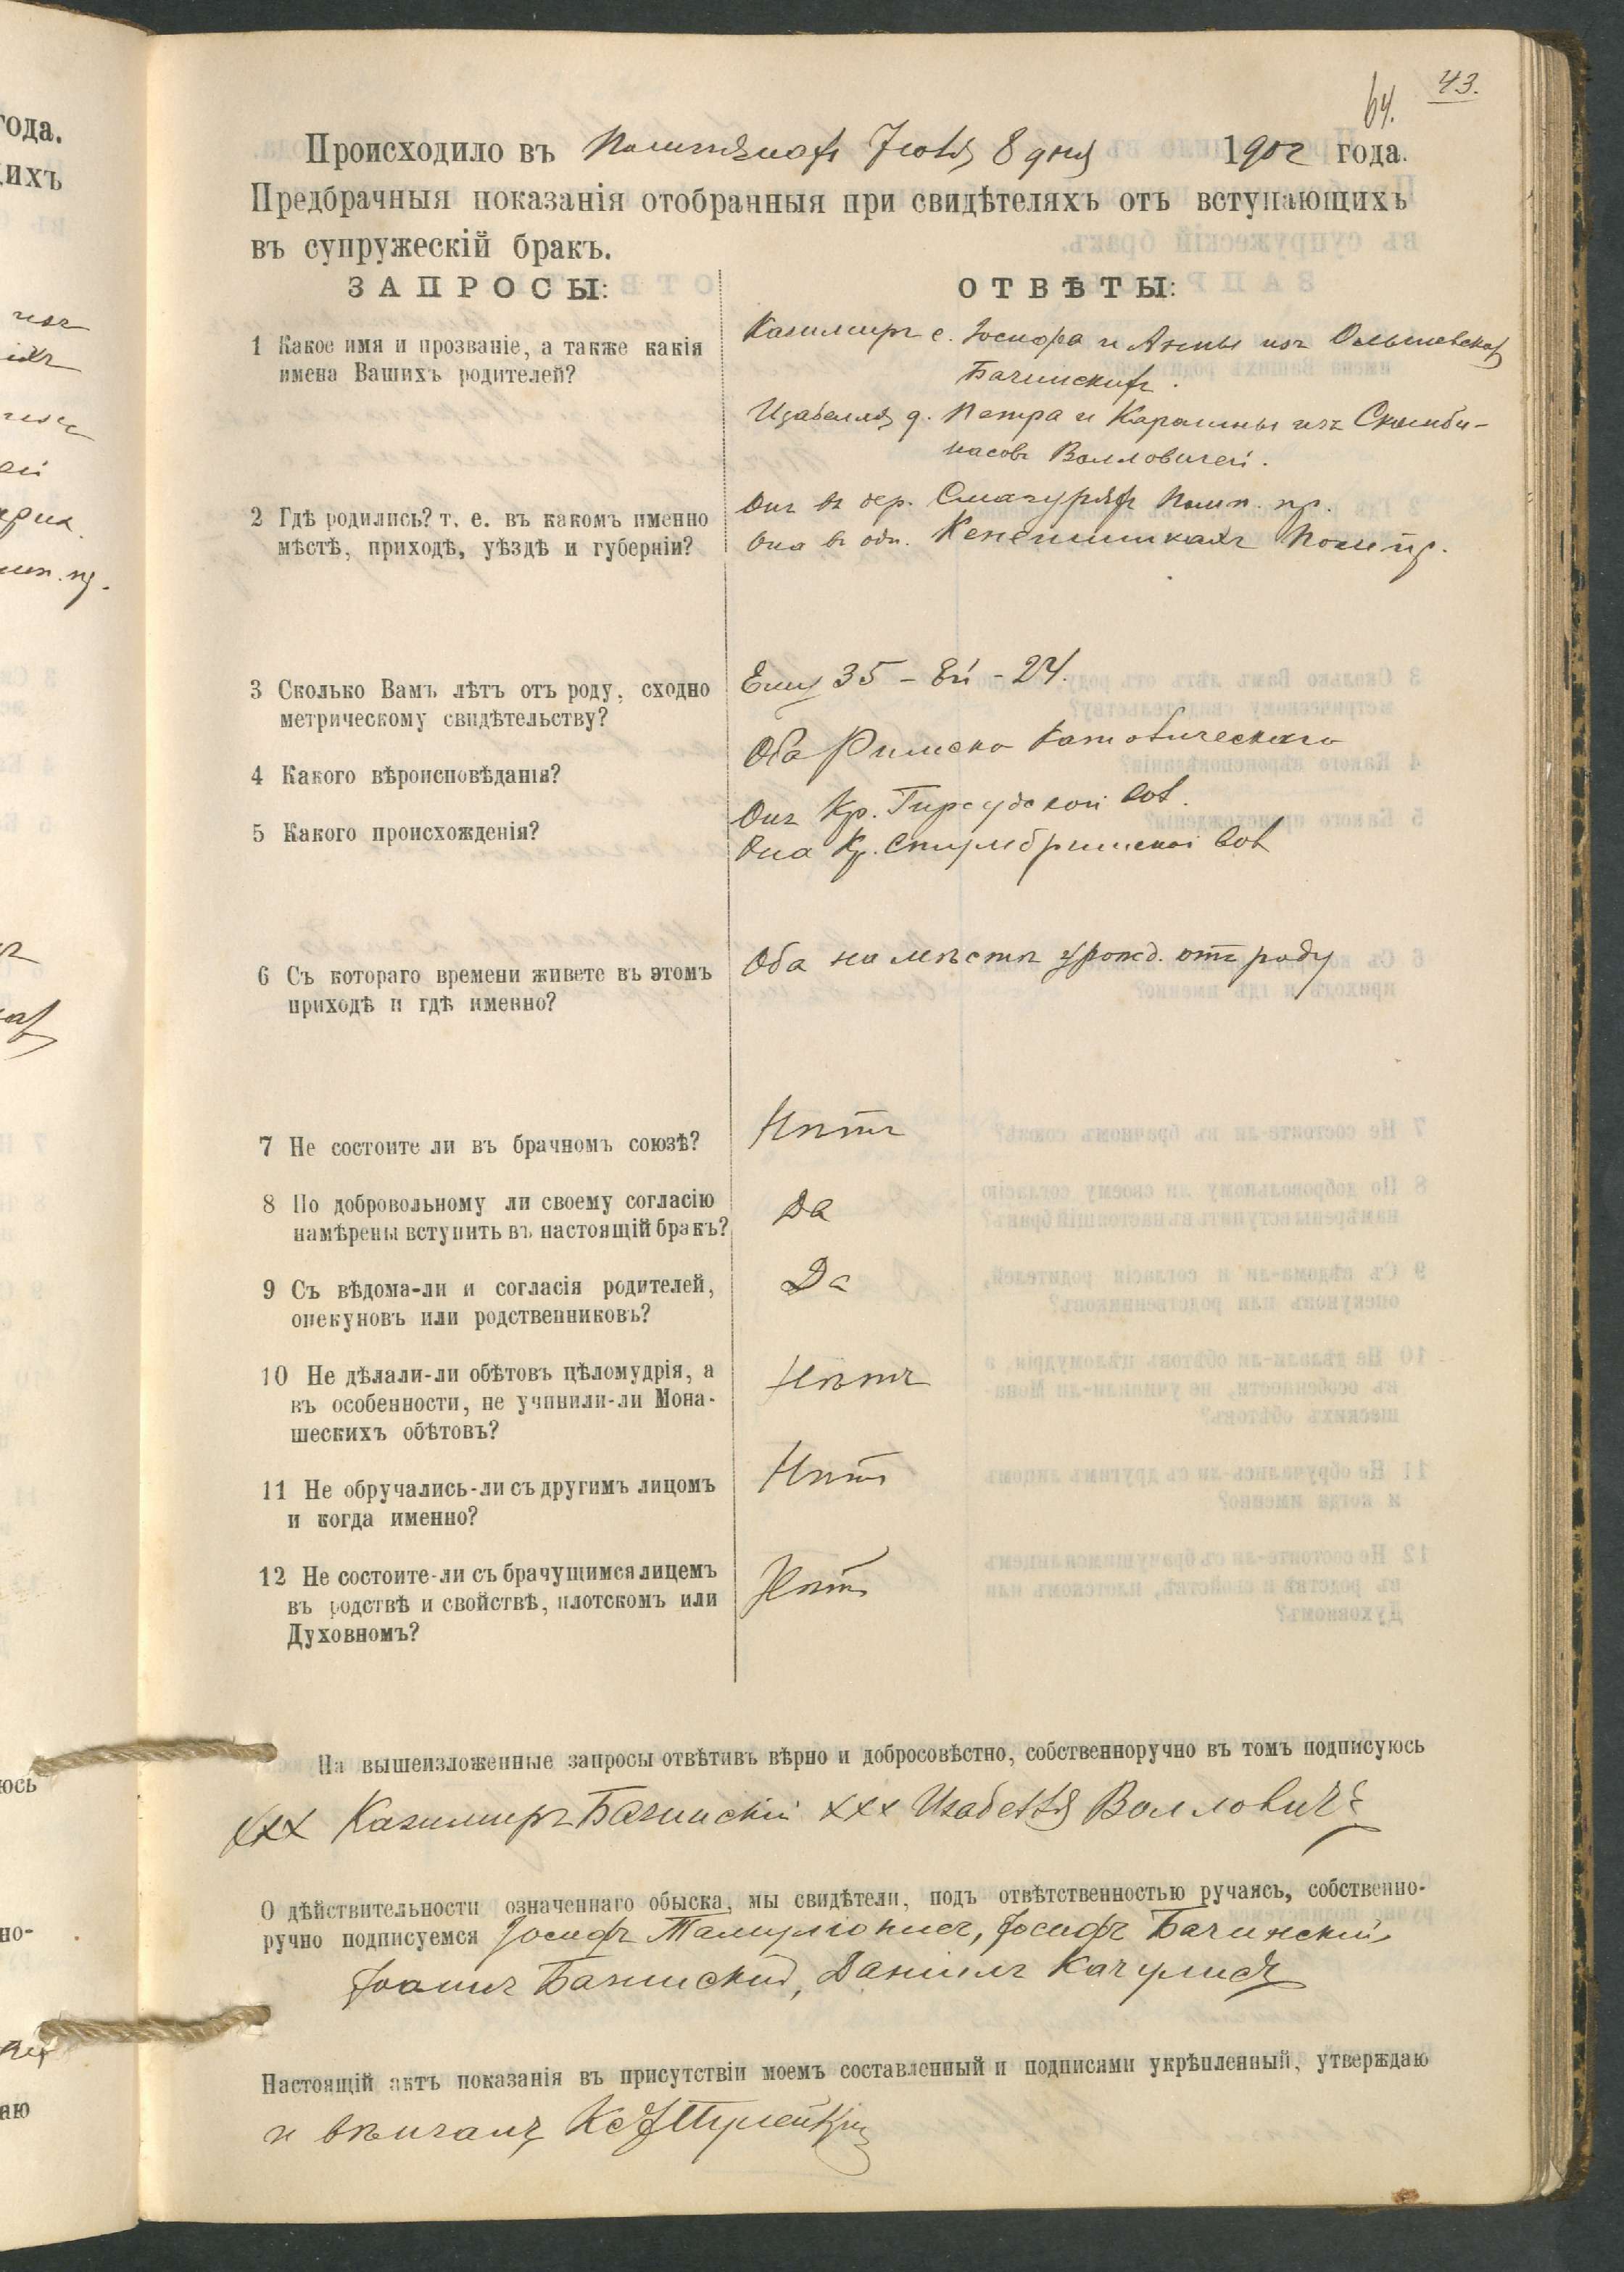 43.
64.
Происходило въ Помпянахъ Іюля 8 дня 1902 года.
Предбрачныя показанія отобранныя при свидѣтеляхъ отъ вступающихъ
въ супружескій бракъ.
ЗАПРОСЫ:
ОТВѢТЫ:
1 Какое имя и прозваніе, а также какія
имена Вашихъ родителей?
Казимиръ с. Іосифа и Анны изъ Ольшевскихъ
Бачинскихъ.
Изабелля д. Петра и Каролины изъ
Волловичей.
2 Гдѣ родились? т. е. въ какомъ именно
мѣстѣ, приходѣ, уѣздѣ и губерніи?
Онъ въ дер. Помп. пр.
Она въ Помп. пр.
3 Сколько Вамъ лѣтъ отъ роду, сходно
метрическому свидѣтельству?
Ему 35 – Ей – 24.
4 Какого вѣроисповѣданія?
Оба Римско Католическаго
5 Какого происхожденія?
Онъ Кр. Гирсудской вол.
Она Кр. вол
6 Съ котораго времени живете въ этомъ
приходѣ и гдѣ именно?
Оба на мѣстѣ урожд. отъ роду
7 Не состоите ли въ брачномъ союзѣ?
Нѣтъ
8 По добровольному ли своему согласію
намѣрены вступить въ настоящій бракъ?
Да
9 Съ вѣдома-ли и согласія родителей,
опекуновъ или родственниковъ?
Да
10 Не дѣлали-ли обѣтовъ цѣломудрія, а
въ особенности, не учинили-ли Мона-
шескихъ обѣтовъ?
Нѣтъ
11 Не обручались-ли съ другимъ лицомъ
и когда именно?
Нѣтъ
12 Не состоите-ли съ брачущимся лицемъ
въ родствѣ и свойствѣ, плотскомъ или
Духовномъ?
Нѣтъ
На вышеизложенные запросы отвѣтивъ вѣрно и добросовѣстно, собственноручно въ томъ подписуюсь
ххх Казимиръ Бачинскій ххх Изабелля Волловичъ
О дѣйствительности означеннаго обыска, мы свидѣтели, подъ отвѣтственностью ручаясь, собственно-
ручно подписуемся Іосифъ Іосифъ Бачинскій,
Іоаннъ Бачинскій, Даніилъ Качулисъ
Настоящій актъ показанія въ присутствіи моемъ составленный и подписями укрѣпленный, утверждаю
и вѣнчалъ